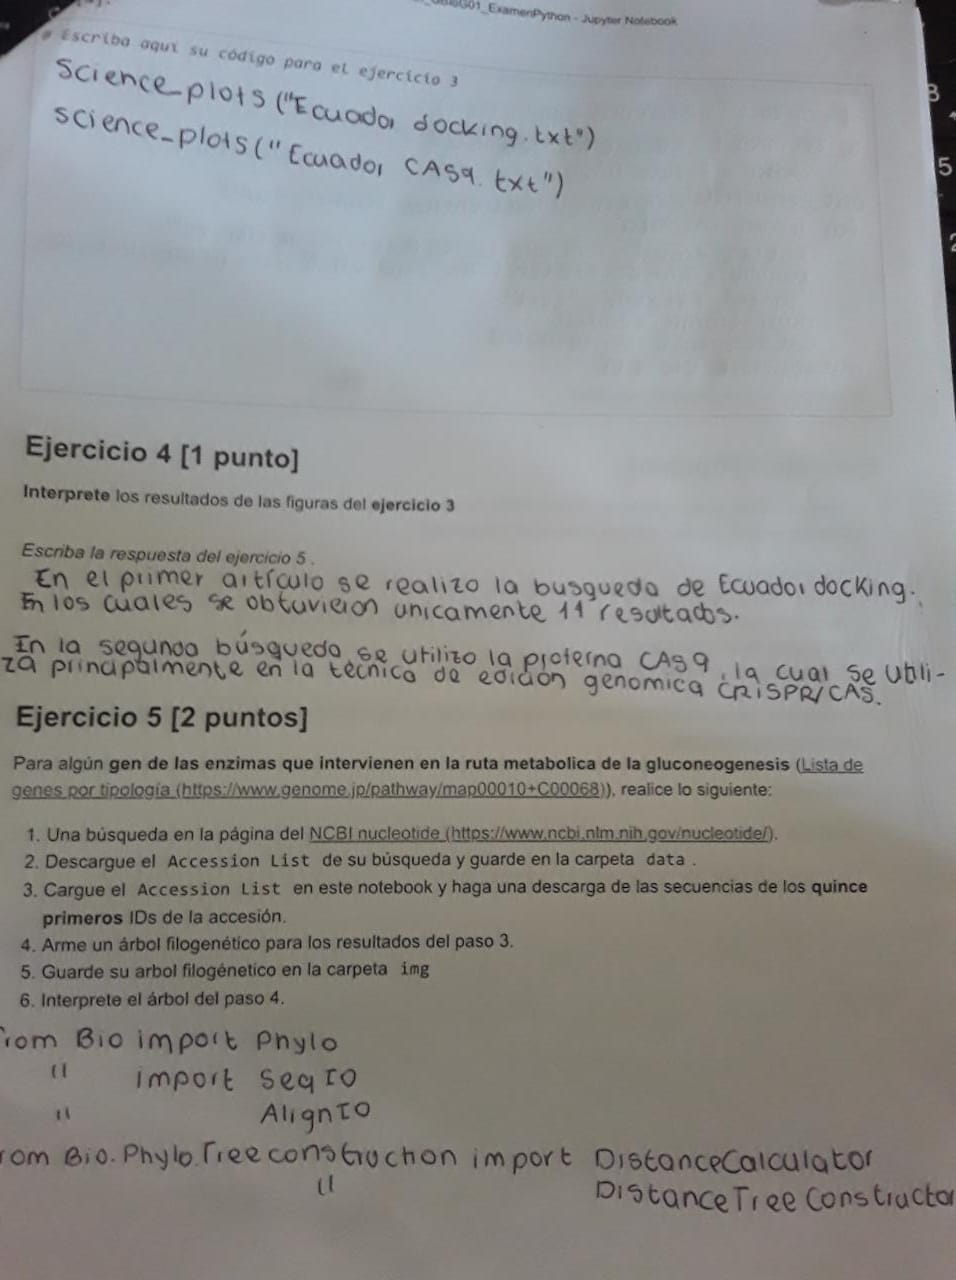 G01_ExamenPython - Jupyter Notebook
# Escriba aquí su código para el ejercicio 3
Science_plots ("Ecuador docking.txt")
science_plots ("Ecuador CAS9.txt")
3
5
2
Ejercicio 4 [1 punto]
Interprete los resultados de las figuras del ejercicio 3
Escriba la respuesta del ejercicio 5 .
En el primer artículo se realizo la busqueda de Ecuador docking.
En los cuales se obtuvieron unicamente 11 resultados.
In la segunda búsqueda se utilizo la proteina CAS9, la cual se utili-
za principalmente en la técnica de edición genomica CRISPR/CAS.
Ejercicio 5 [2 puntos]
Para algún gen de las enzimas que intervienen en la ruta metabolica de la gluconeogenesis (Lista de
genes por tipología (https://www.genome.jp/pathway/map00010+C00068)), realice lo siguiente:
1. Una búsqueda en la página del NCBI nucleotide (https://www.ncbi.nlm.nih.gov/nucleotide/).
2. Descargue el Accession List de su búsqueda y guarde en la carpeta data .
3. Cargue el Accession List en este notebook y haga una descarga de las secuencias de los quince
primeros IDs de la accesión.
4. Arme un árbol filogenético para los resultados del paso 3.
5. Guarde su arbol filógenetico en la carpeta img
6. Interprete el árbol del paso 4.
rom Bio import Phylo
" import SeqIO
" AlignIO
rom Bio.Phylo.TreeConstruction import DistanceCalculator
" DistanceTreeConstructor